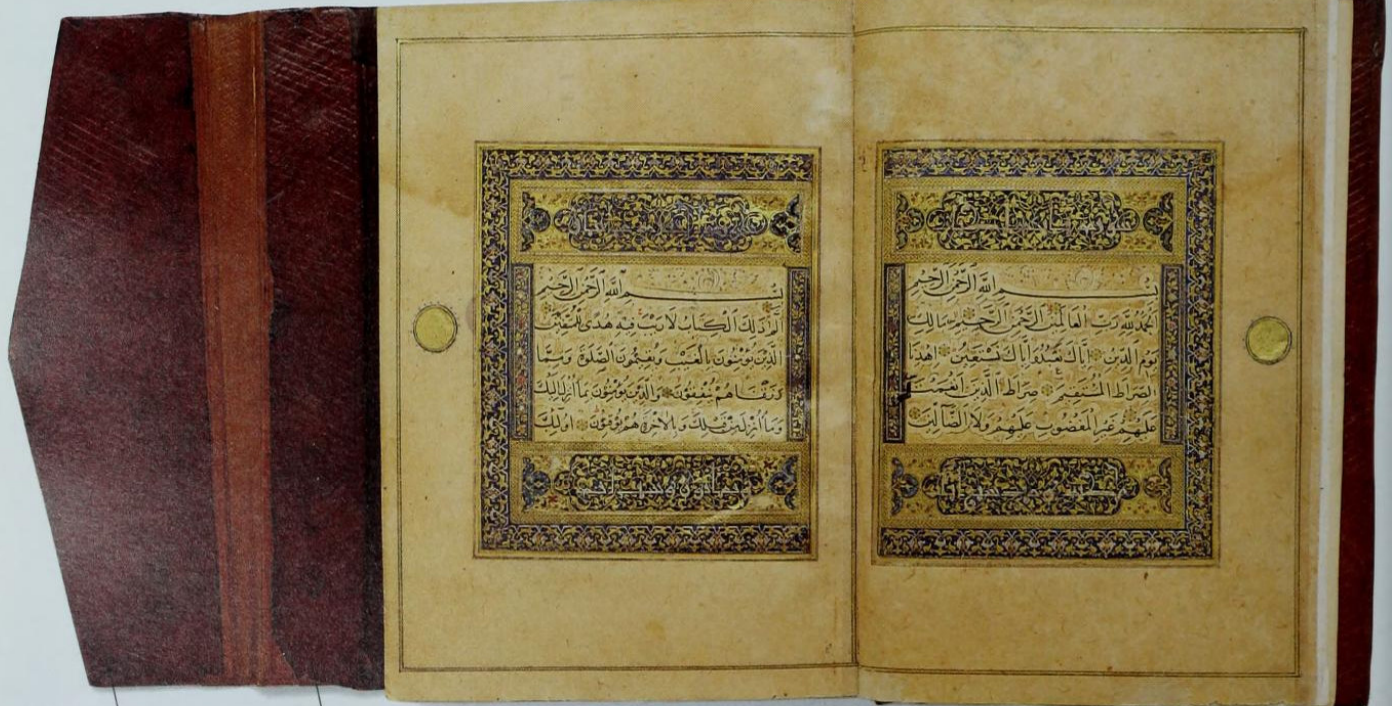 بسم الله الرحمن الرحيم
الحمد لله رب العالمين الرحمن الرحيم مالك
يوم الدين اياك نعبد واياك نستعين اهدنا
الصراط المستقيم صراط الذين انعمت
عليهم غير المغضوب عليهم ولا الضالين
بسم الله الرحمن الرحيم
الم ذلك الكتاب لا ريب فيه هدى للمتقين
الذين يؤمنون بالغيب ويقيمون الصلوة ومما
رزقناهم ينفقون والذين يؤمنون بما انزل اليك
وما انزل من قبلك وبالاخرة هم يوقنون اولئك